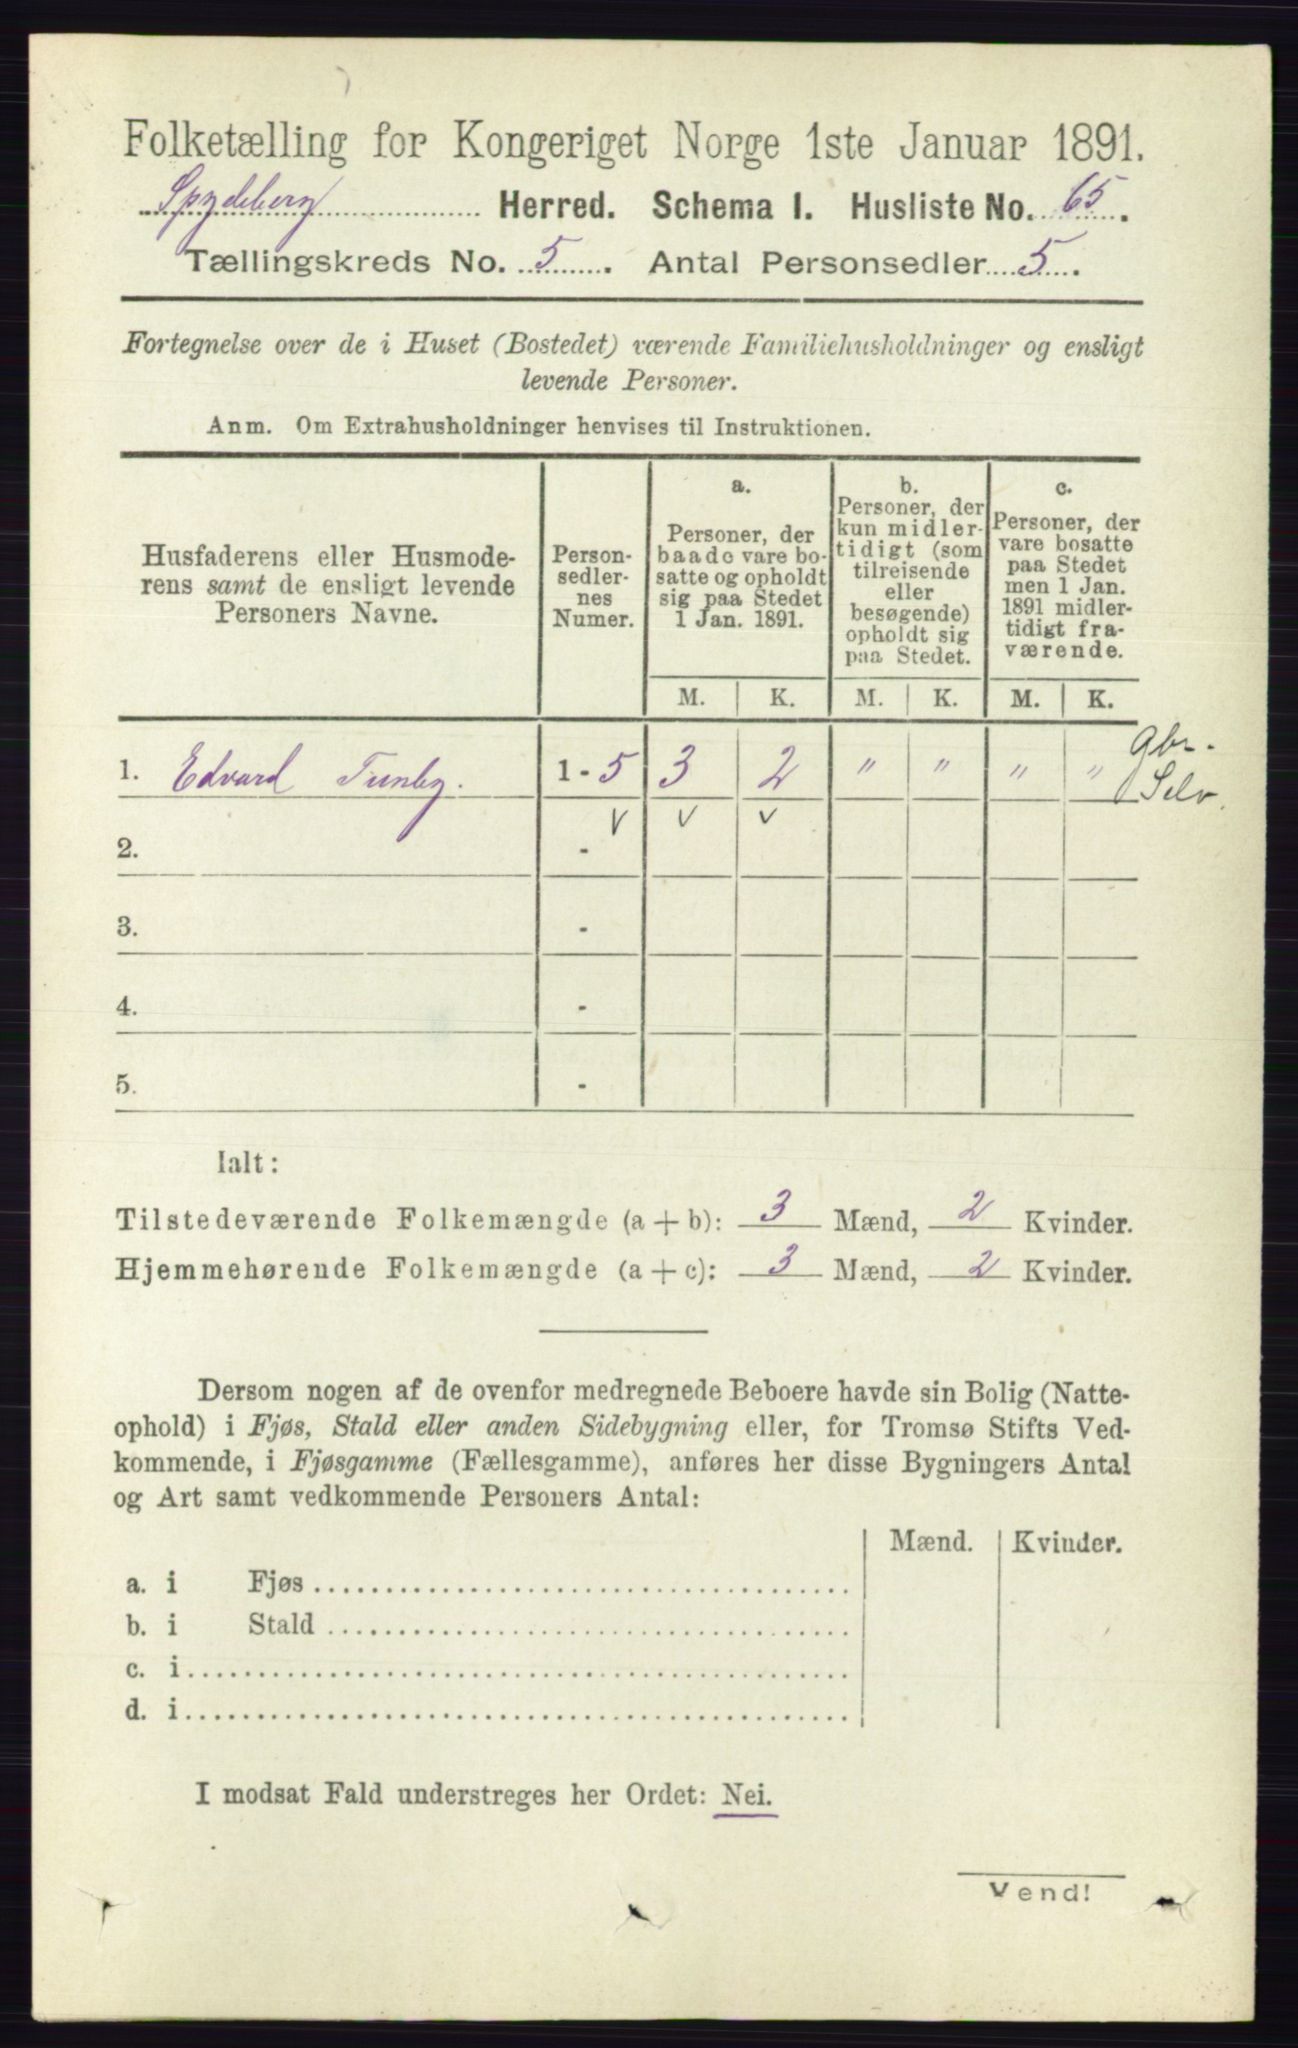 Folketælling for Kongeriget Norge 1ste Januar 1891.
Spydeberg Herred. Schema I. Husliste No. 65.
Tællingskreds No. 5. Antal Personsedler 5.
Fortegnelse over de i Huset (Bostedet) værende Familiehusholdninger og ensligt
levende Personer.
Anm. Om Extrahusholdninger henvises til Instruktionen.
Husfaderens eller Husmode-
rens samt de ensligt levende
Personers Navne.
Person-
sedler-
nes
Numer.
a.
Personer, der
baade vare bo-
satte og opholdt
sig paa Stedet
1 Jan. 1891.
b.
Personer, der
kun midler-
tidigt (som
tilreisende
eller
besøgende)
opholdt sig
paa Stedet.
c.
Personer, der
vare bosatte
paa Stedet
men 1 Jan.
1891 midler-
tidigt fra-
værende.
M. K. M. K. M. K.
1. Edvard Tunby. 1 - 5 3 2 " " " " Gbr.
Selv.
v v v
2. -
3. -
4. -
5. -
Ialt:
Tilstedeværende Folkemængde (a + b): 3 Mænd, 2 Kvinder.
Hjemmehørende Folkemængde (a + c): 3 Mænd, 2 Kvinder.
Dersom nogen af de ovenfor medregnede Beboere havde sin Bolig (Natte-
ophold) i Fjøs, Stald eller anden Sidebygning eller, for Tromsø Stifts Ved-
kommende, i Fjøsgamme (Fællesgamme), anføres her disse Bygningers Antal
og Art samt vedkommende Personers Antal:
Mænd. Kvinder.
a. i Fjøs
b. i Stald
c. i
d. i
I modsat Fald understreges her Ordet: Nei.
Vend!